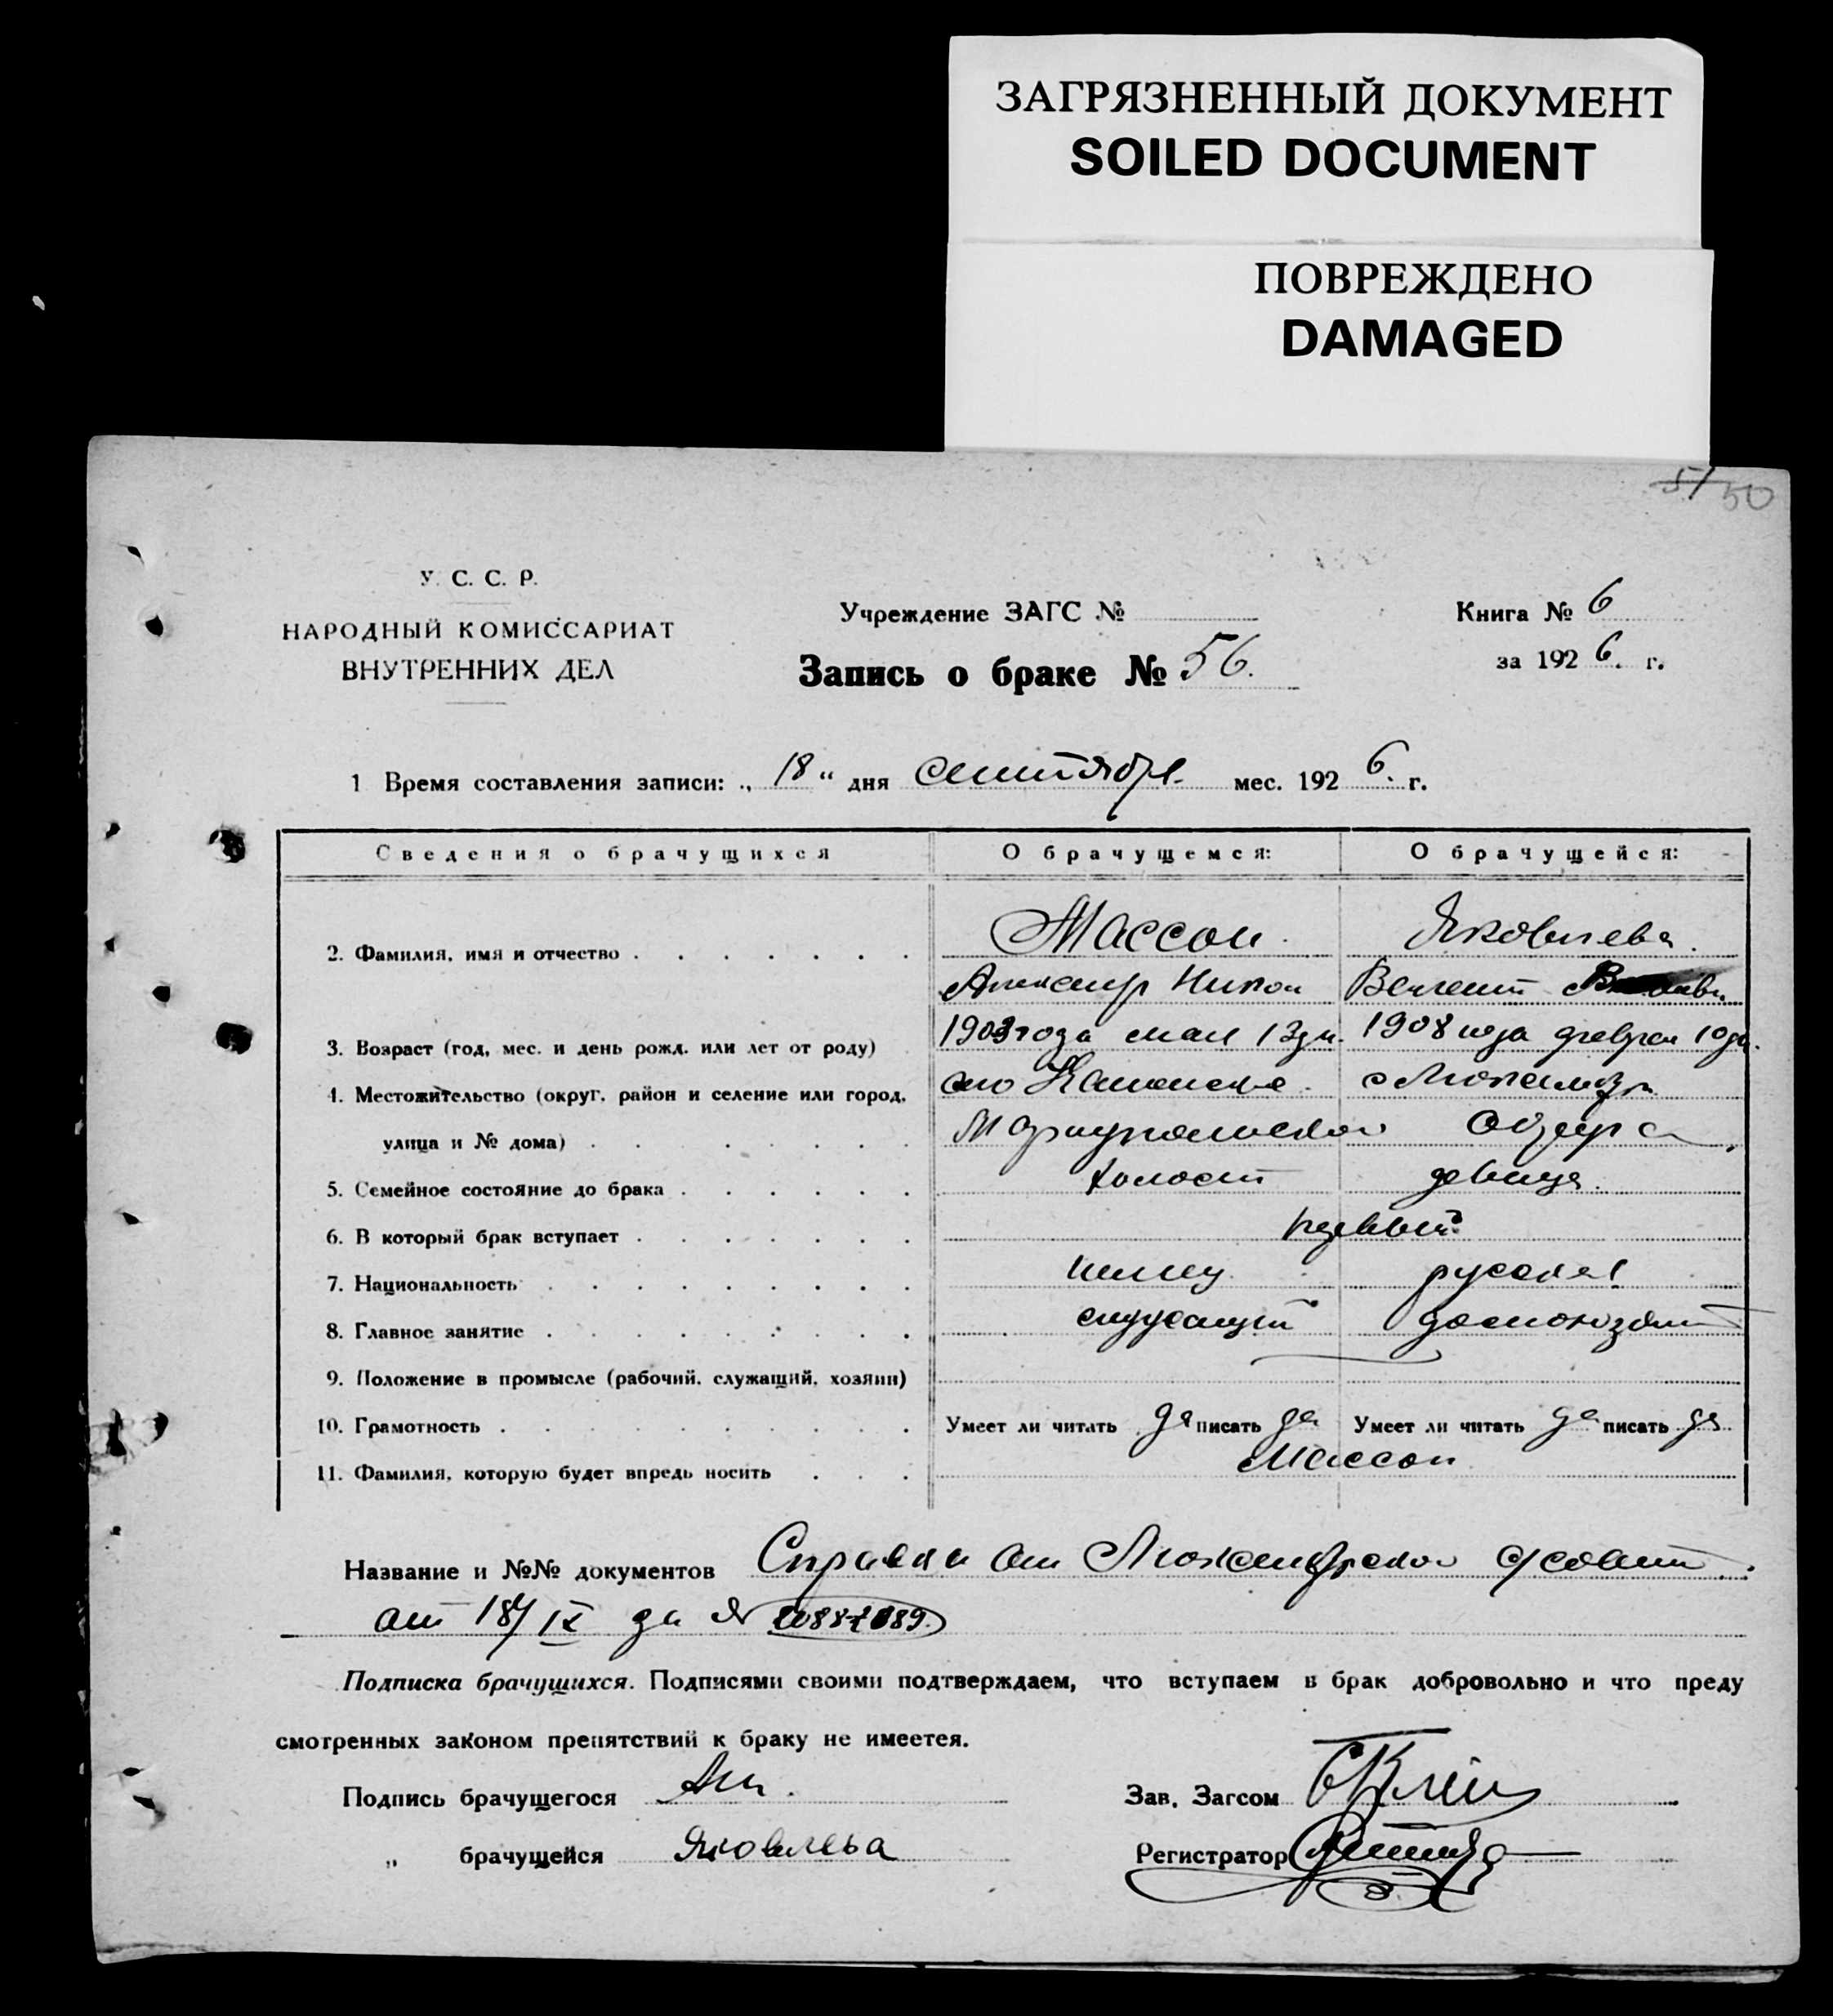 ЗАГРЯЗНЕННЫЙ ДОКУМЕНТ
SOILED DOCUMENT
ПОВРЕЖДЕНО
DAMAGED
51 50
У. С. С. Р.
НАРОДНЫЙ КОМИССАРИАТ
ВНУТРЕННИХ ДЕЛ
Учреждение ЗАГС №
Запись о браке № 56.
Книга № 6
за 1926. г.
1 Время составления записи: „ 18 “ дня сентября мес. 1926. г.
Сведения о брачущихся О брачущемся: О брачущейся:
Массон Яковлева
2. Фамилия, имя и отчество
Александр Никол Валент
3. Возраст (год, мес. и день рожд. или лет от роду) 1903 года мая 13 дн. 1908 года феврал 10 дн.
4. Местожительство (округ, район и селение или город,
улица и № дома) Мариупольского Округа
5. Семейное состояние до брака холост девица
6. В который брак вступает первый
7. Национальность немец русская
8. Главное занятие служащий
9. Положение в промысле (рабочий, служащий, хозяин)
10. Грамотность Умеет ли читать да писать да Умеет ли читать да писать да
11. Фамилия, которую будет впредь носить Массон
Название и №№ документов Справка от с/совета
от 18/IX за №
Подписка брачущихся. Подписями своими подтверждаем, что вступаем в брак добровольно и что преду
смотренных законом препятствий к браку не имеется.
Подпись брачущегося Зав. Загсом
„ брачущейся Яковлева Регистратор